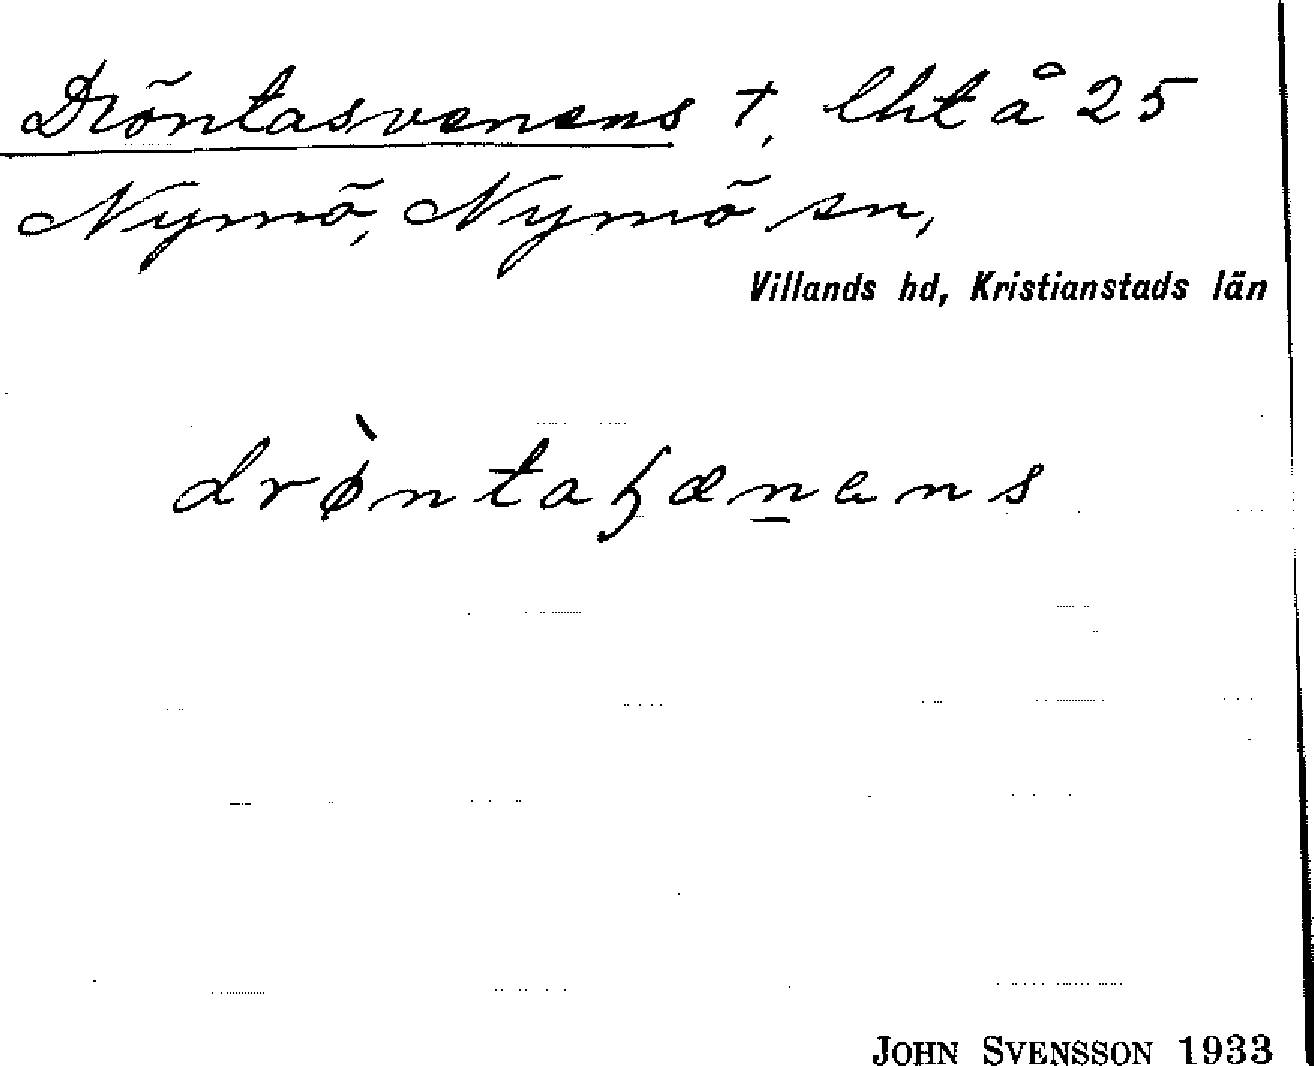 Dröntasvenens †, lht å 25
Nymö, Nymö sn,
Villands hd, Kristianstads län
drø̀ntaꜧæn̲ens
JOHN SVENSSON 1933